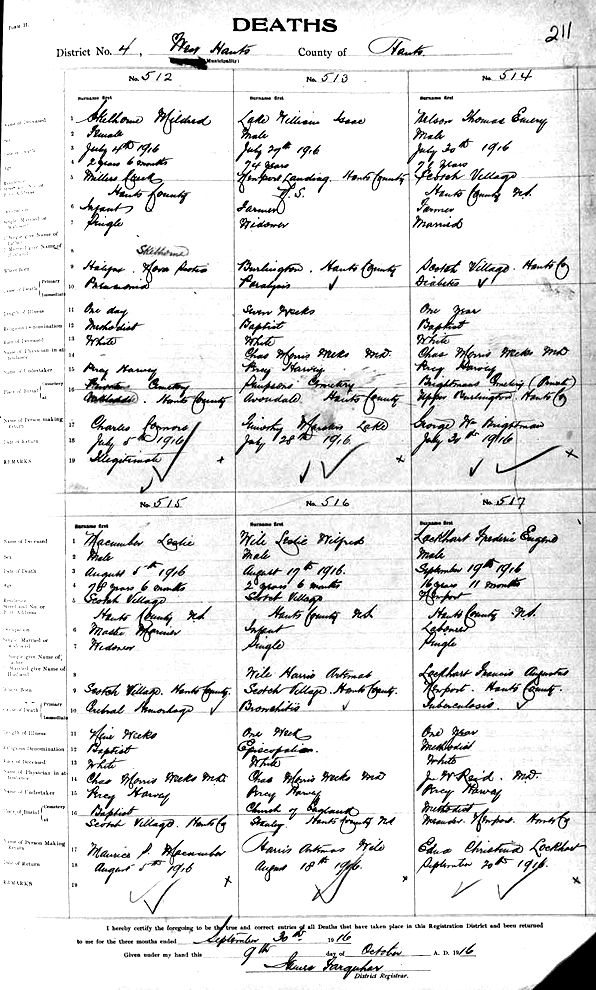 FORM II.
DEATHS
211
District No. 4, West Hants County of Hants
(Municipality)
No. 512 No. 513 No. 514
Surname first Surname first Surname first
Name of Deceased 1 Skelhorne Mildred Lake William Isaac Nelson Thomas Emery
Sex 2 Female Male Male
Date of Death 3 July 4th 1916 July 27th 1916 July 20th 1916
Age 4 2 years 6 months 74 years 76 years
Residence 5 Millers Creek Newport Landing. Hants County Scotch Village
Hants County N.S. Hants County N.S.
Occupation 6 Infant Farmer Farmer
Single, Married or Widowed 7 Single Widower Married
8 Skelhorne
Where Born 9 Halifax. Nova Scotia Burlington. Hants County Scotch Village. Hants Co
Cause of Death Primary Immediate 10 Pneumonia Paralysis Diabetes
Length of Illness 11 One day Seven Weeks One Year
Religious Denomination 12 Methodist Baptist Baptist
Race of Deceased 13 White White White
Name of Physician in at- 14 Chas Morris Weeks Md. Chas Morris Weeks Md
Name of Undertaker 15 Percy Harvey Percy Harvey Percy Harvey
Place of Burial Cemetery at 16 Cemetery Simpsons Cemetery Brightmans Cemetery (Private)
Hants County Avondale Hants County Upper Burlington. Hants Co
Name of Person making Return 17 Charles Connors Timothy Lake George Wm Brightman
Date of Return 18 July 5th 1916 July 28th 1916 July 20th 1916
REMARKS 19 Illegitimate
No. 515 No. 516 No. 517
Surname first Surname first Surname first
Name of Deceased 1 Macumber Leslie Wile Leslie Wilfred Lockhart Frederic Eugene
Sex 2 Male Male Male
Date of Death 3 August 5th 1916 August 17th 1916. September 19th 1916
Age 4 78 years 6 months 2 years 6 months 16 years 11 months
Residence 5 Scotch Village Scotch Village Newport
Hants County N.S. Hants County N.S. Hants County N.S.
Occupation 6 Master Mariner Infant Labourer
Single, Married or Widowed 7 Widower Single Single
8 Wile Harris Artemas Lockhart Francis Augustus
Where Born 9 Scotch Village. Hants County. Scotch Village. Hants County. Newport. Hants County.
Cause of Death Primary Immediate 10 Cerebral Hemorrhage Bronchitis Tuberculosis
Length of Illness 11 Nine Weeks One Week One Year
Religious Denomination 12 Baptist Episcopalian. Methodist
Race of Deceased 13 White White White
Name of Physician in at- 14 Chas Morris Weeks Md. Chas Morris Weeks Md J. W. Reid. Md.
Name of Undertaker 15 Percy Harvey Percy Harvey Percy Harvey
Place of Burial Cemetery at 16 Baptist Church of England Methodist
Scotch Village. Hants Co Stanley. Hants County N.S Meander. Newport. Hants Co
Name of Person Making Return 17 Maurice P. Macumber Harris Artemas Wile Edna Christina Lockhart
Date of Return 18 August 5th 1916 August 18th 1916. September 20th 1916.
REMARKS 19
I hereby certify the foregoing to be the true and correct entries of all Deaths that have taken place in this Registration District and been returned
to me for the three months ended September 30th 1916
Given under my hand this 9th day of October A. D. 1916
James Farquhar
District Registrar.